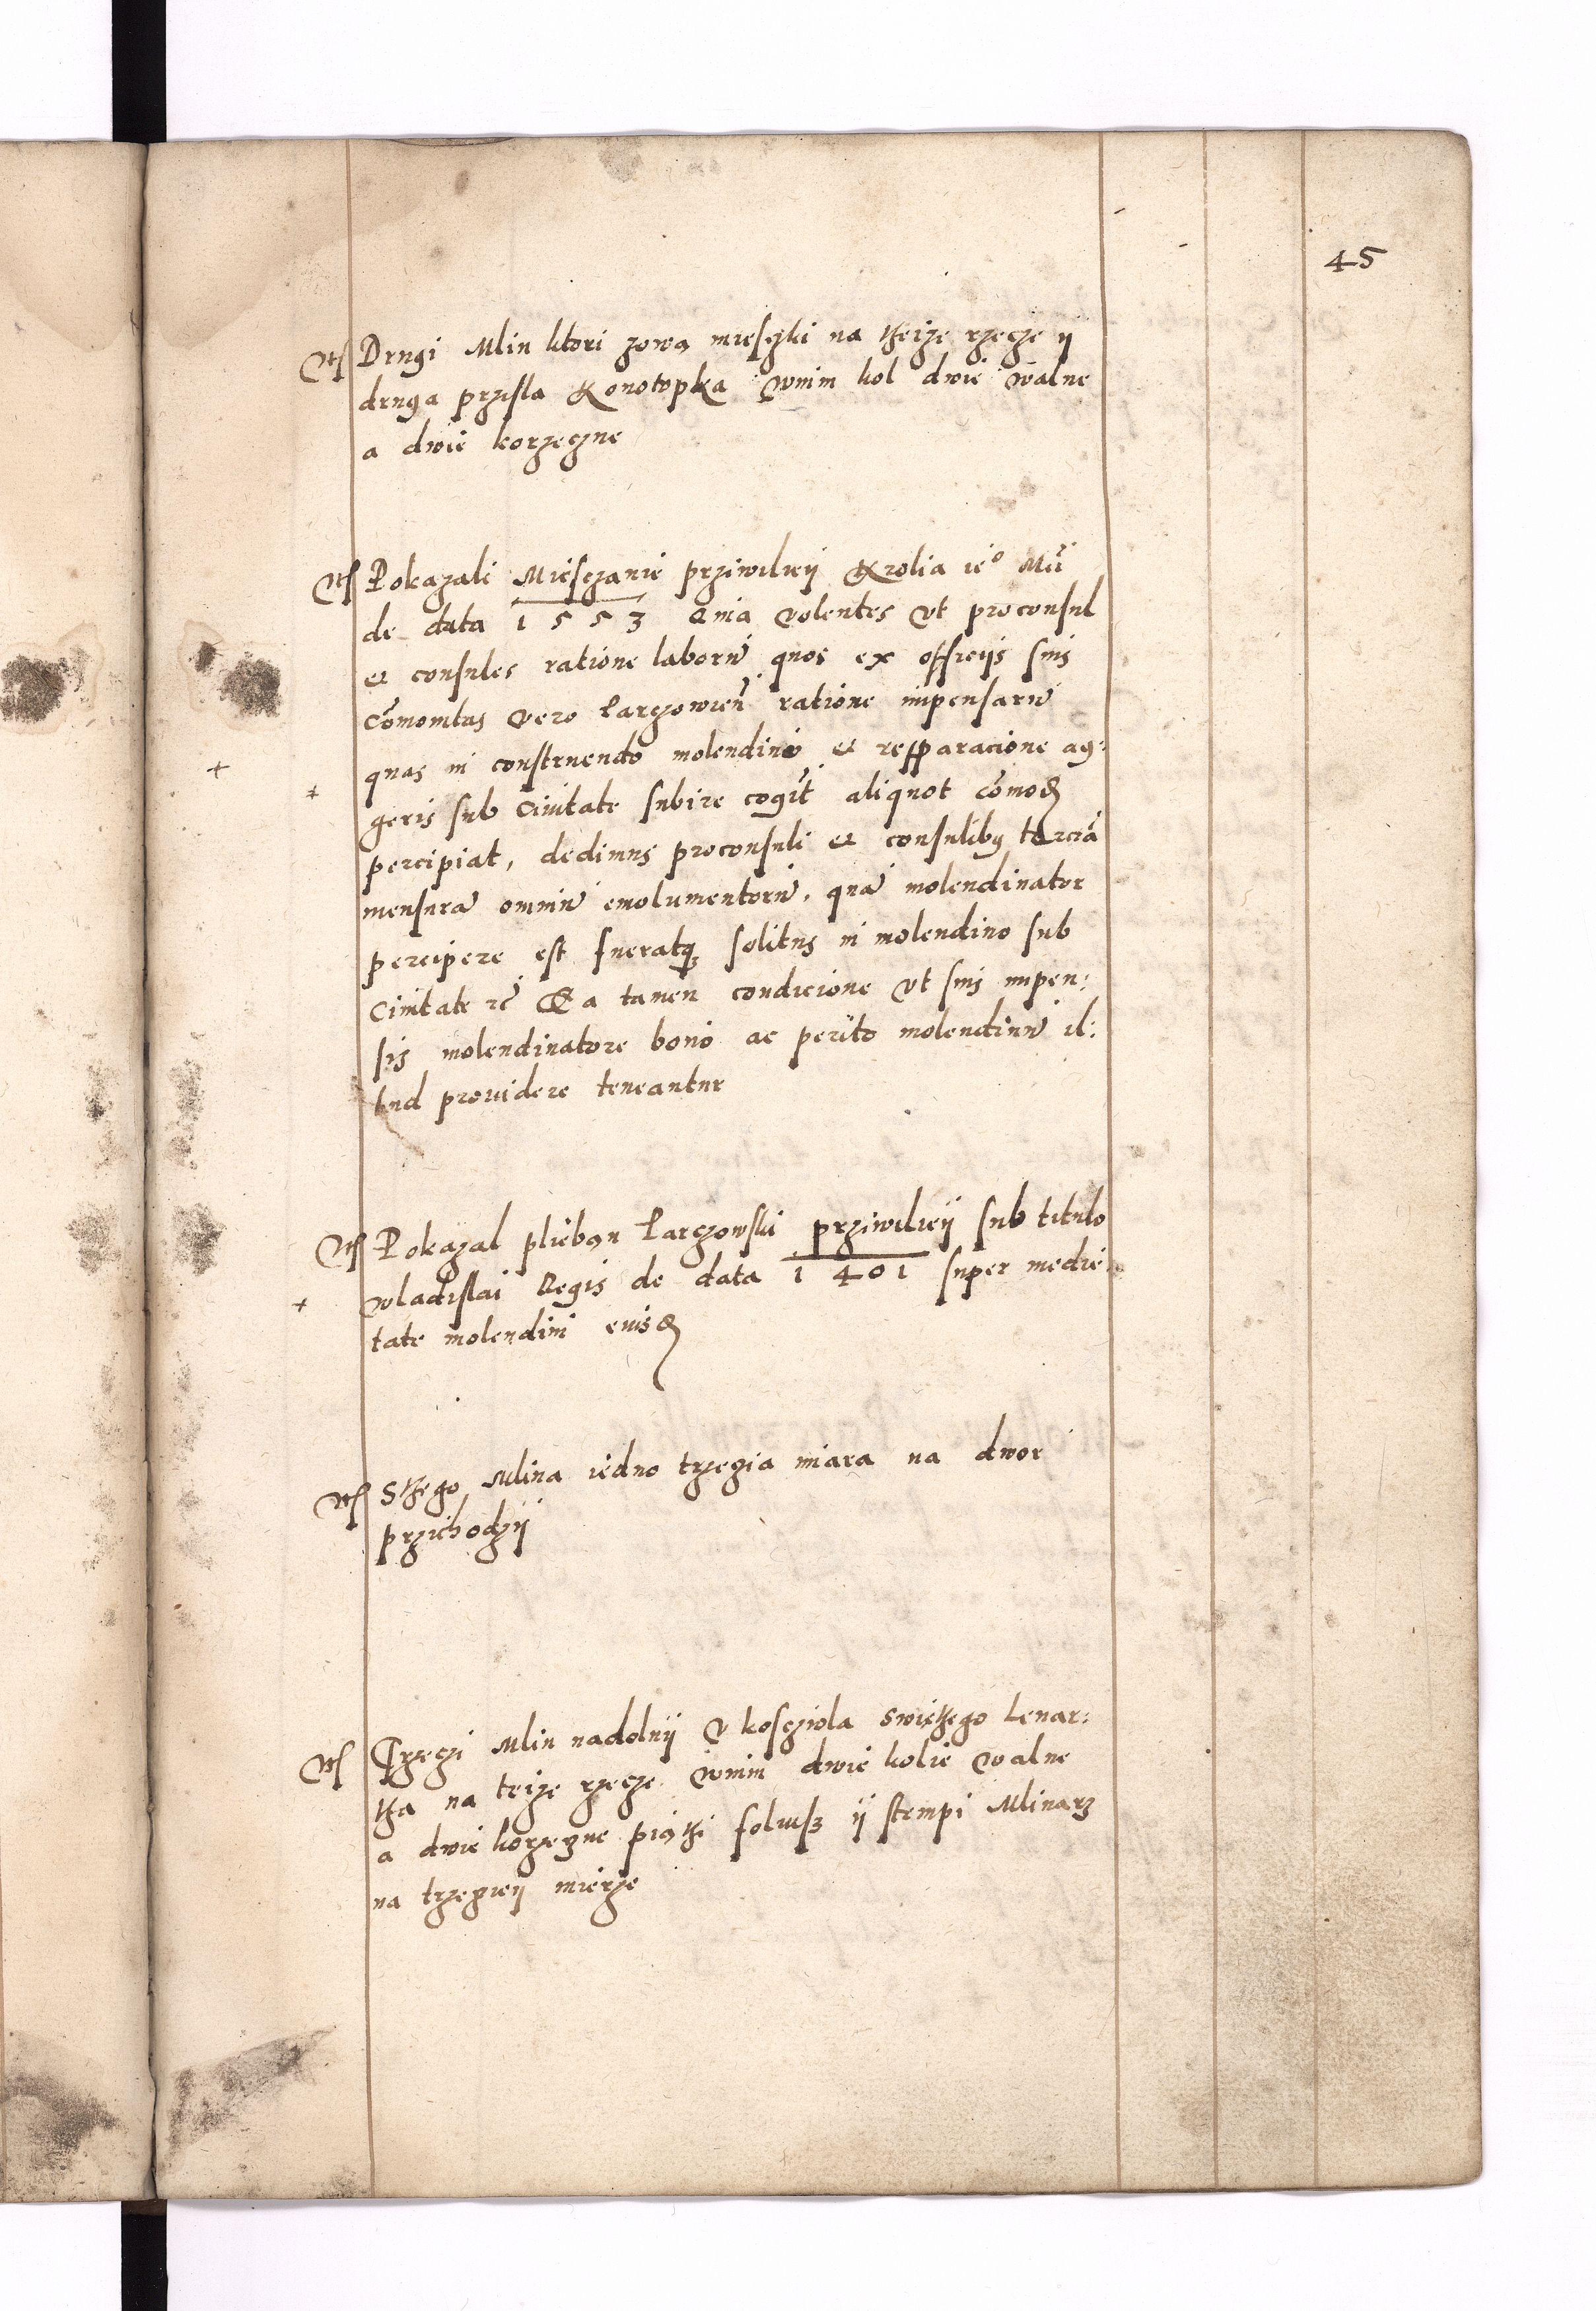 45
Itẽ Drugi Mlin ktori zową mieszki na theize rzecze ÿ
druga przisla Konotopka wnim kol dwie walne
a dwie korzeczne
Itẽ Pokazali Miesczanie prziwileÿ Krolia ieº Mci
de data 1553 Quia volentes vt proconsul
et consules ratione laborũ quos ex officijs suis
Cõmonitas vero Parczowien̄ ratione impensarũ
quas in construendo molendino et repparacione ag:
geris sub Ciuitate subire cogũt aliquot cõmod
percipiat, dedimus proconsuli et consulibꝰ terciã
mensurã omniũ emolumentorũ, quã molendinator
percipere est fueratqꝫ solitus in molendino sub
Ciuitate ꝛc̃ Ea tamen condicione vt suis impen:
sis molendinatore bono ac perito molendinũ il:
lud prouidere teneantur
Itẽ Pokazal plieban Parczowski prziwileÿ sub titulo
wladislai Regis de data 1401 super medie:
tate molendini eiusd
Itẽ Sthego Mlina iedno trzeczia miara na dwor
przichodzÿ
Itẽ Trzeczi Mlin nadolnÿ v koscziola swięthego Lenar:
tha na teize rzecze wnim dwie kolie walne
a dwie korzeczne piąthi folusz ÿ stempi Mlinarz
na trzecieÿ mierze